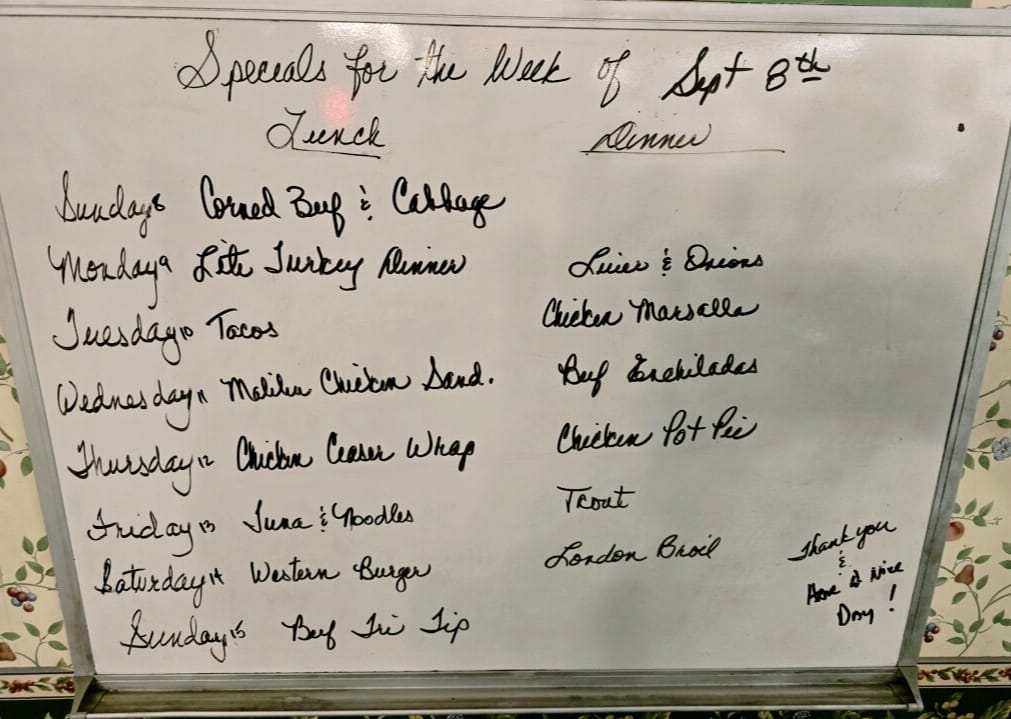 Specials for the Week of Sept 8th
Lunch Dinner
Sunday 8 Corned Beef & Cabbage
Monday 9 Lite Turkey Dinner Liver & Onions
Tuesday 10 Tacos Chicken Marsalla
Wednesday 11 Malibu Chicken Sand. Beef Enchiladas
Thursday 12 Chicken Ceaser Wrap Chicken Pot Pie
Friday 13 Tuna & Noodles Trout
Saturday 14 Western Burger London Broil
Sunday 15 Beef Tri Tip
Thank you
&
Have A Nice
Day!